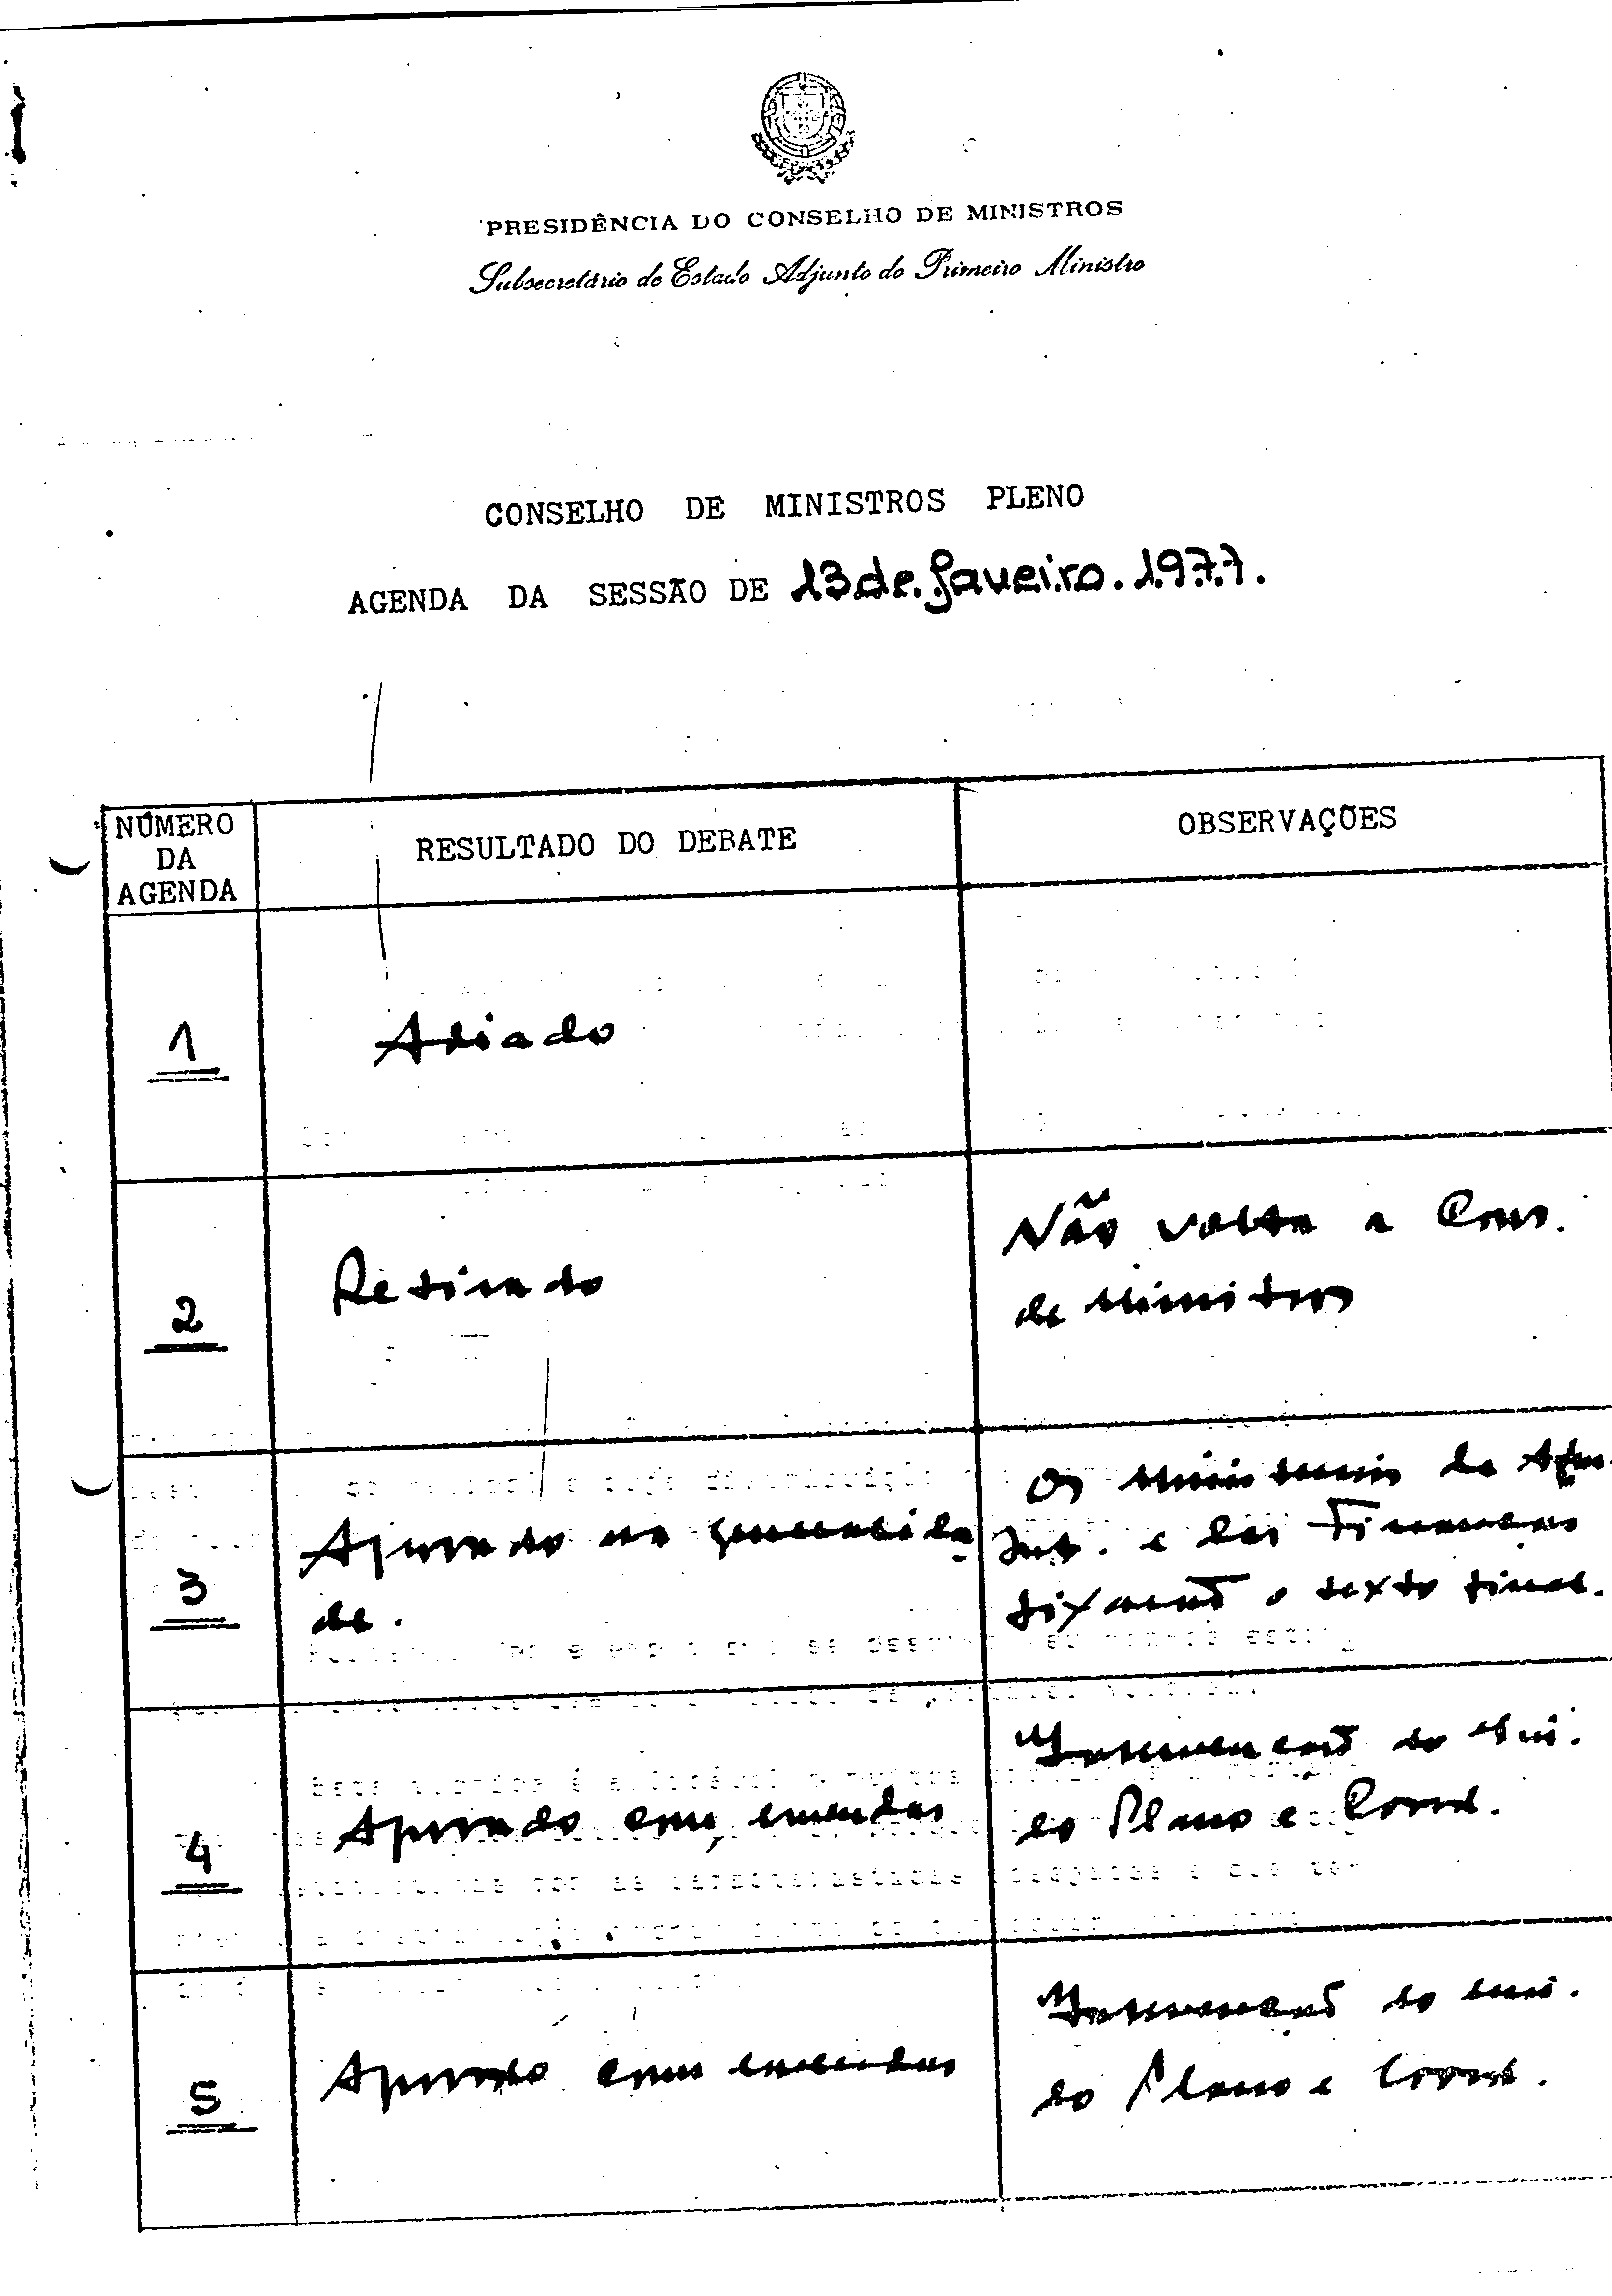 PRESIDÊNCIA DO CONSELHO DE MINISTROS
Subsecretário de Estado Adjunto do Primeiro Ministro
CONSELHO DE MINISTROS PLENO
AGENDA DA SESSÃO DE 13 de Janeiro. 1977.
NÚMERO
DA
AGENDA
RESULTADO DO DEBATE
OBSERVAÇÕES
1
Adiado
2
Retirado
Não volta a Cons.
de Ministros
3
Aprovado na generalida
de.
Os
e das Finanças
fixarão o texto final.
4
Aprovado com emendas
do Min.
do Plano e Coord.
5
Aprovado com emendas
do Min.
do Plano e Coord.